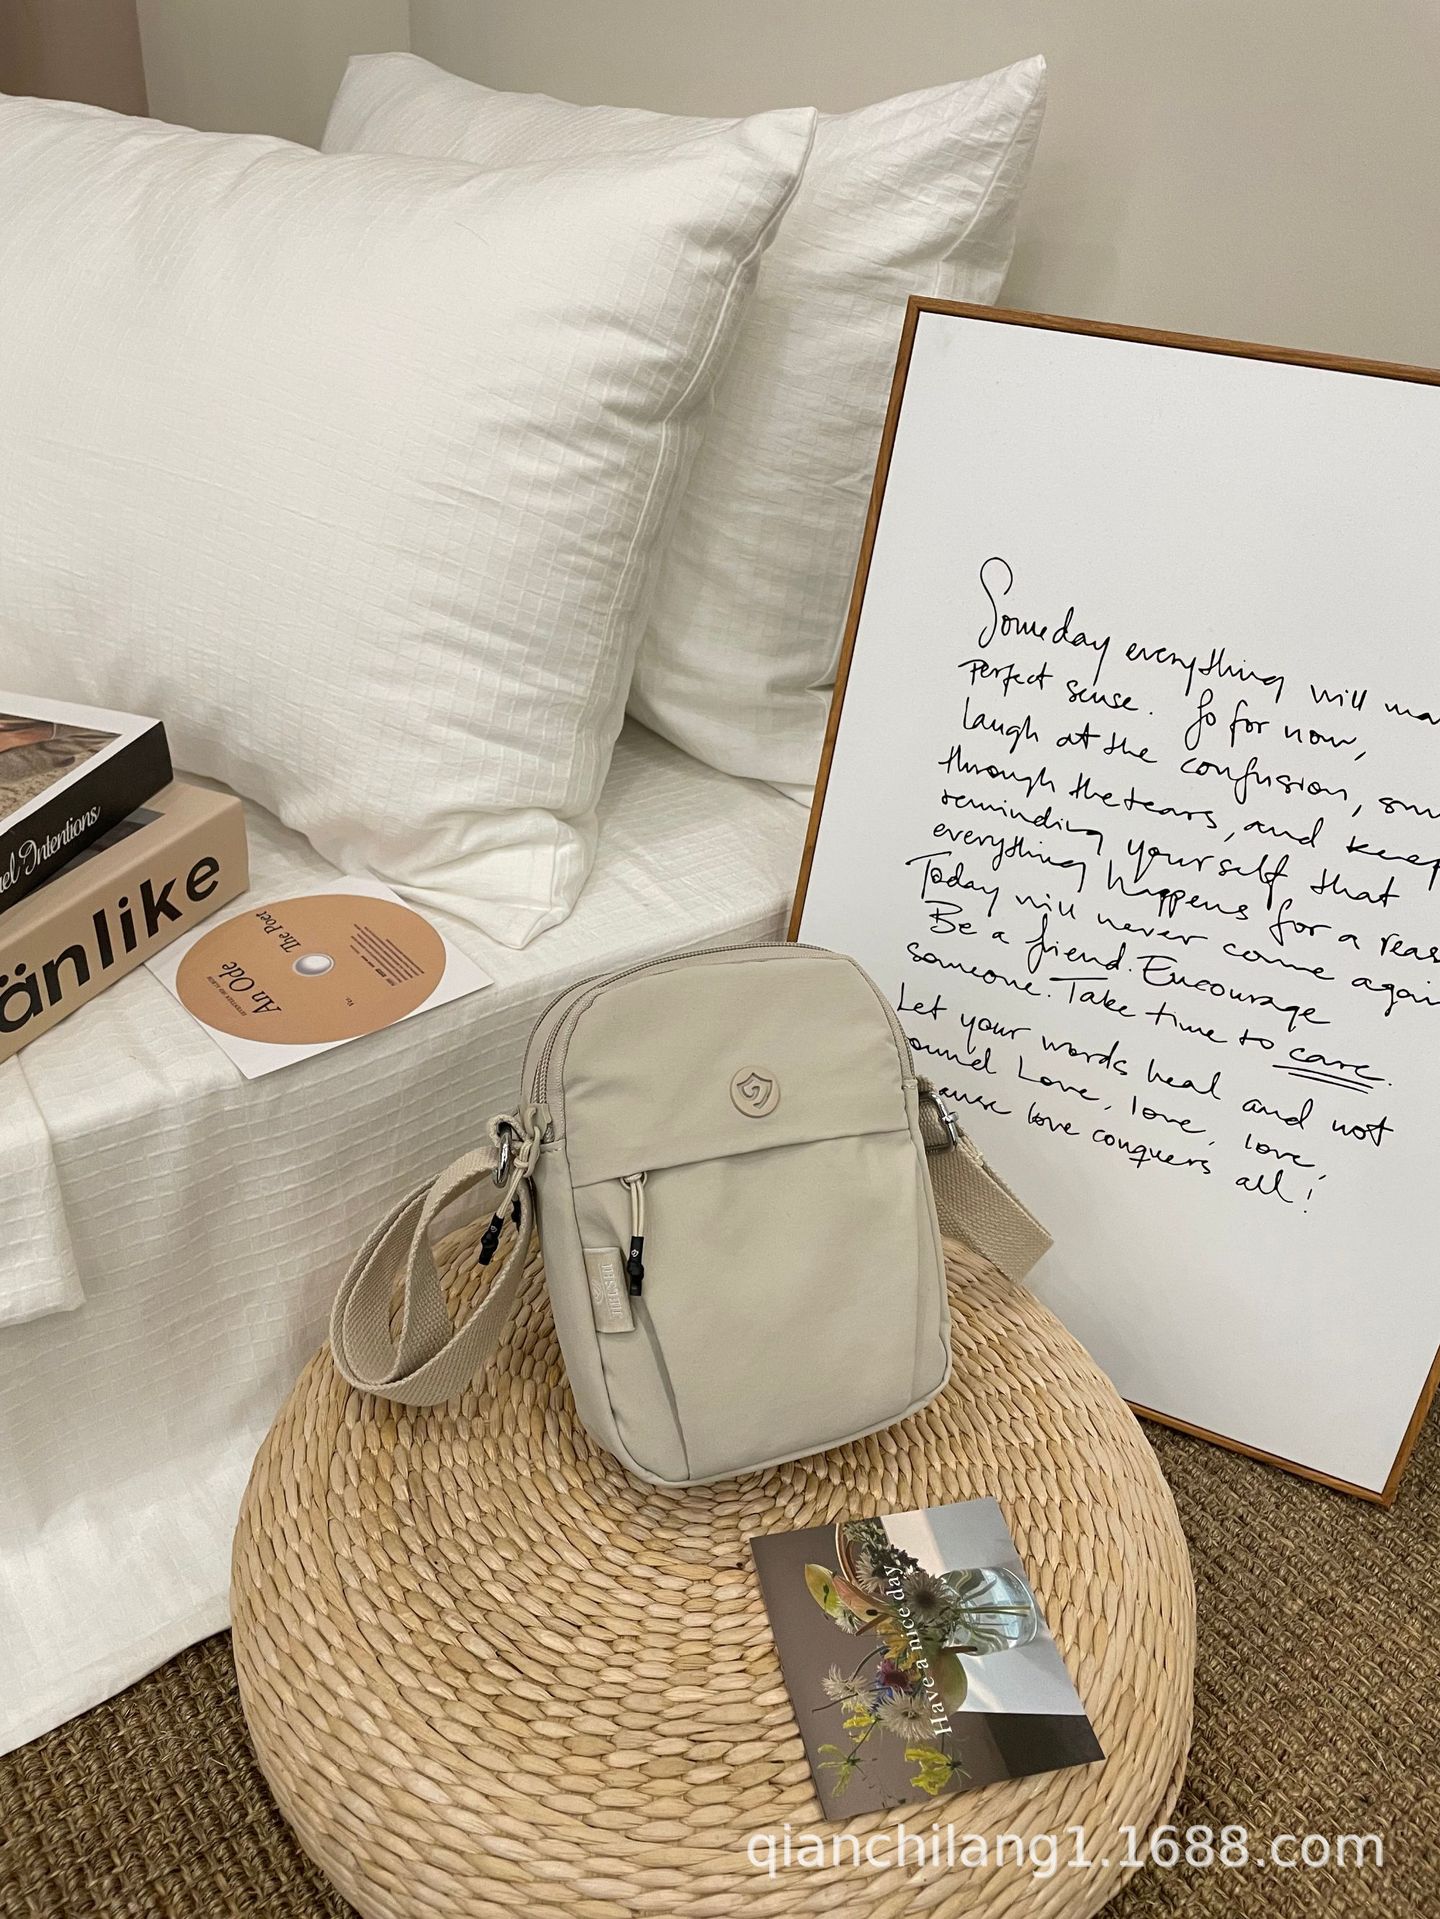 Someday everything will ma
Perfect sense. So for now,
laugh at the confusion, sm
through the tears, and keep
reminding yourself that
everything happens for a reas
Today will never come agai
Be a friend. Encourage
someone. Take time to care.
Let your words heal and not
ound Love, love, love,
ause love conquers all!
el Intentions
änlike
An Ode
The Poet
Have a nice day
qianchilang1.1688.com